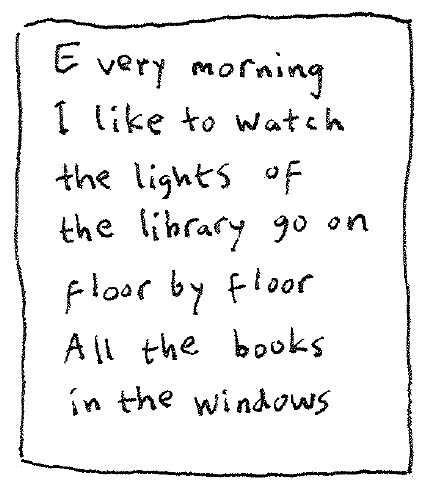 Every morning
I like to watch
the lights of
the library go on
floor by floor
All the books
in the windows